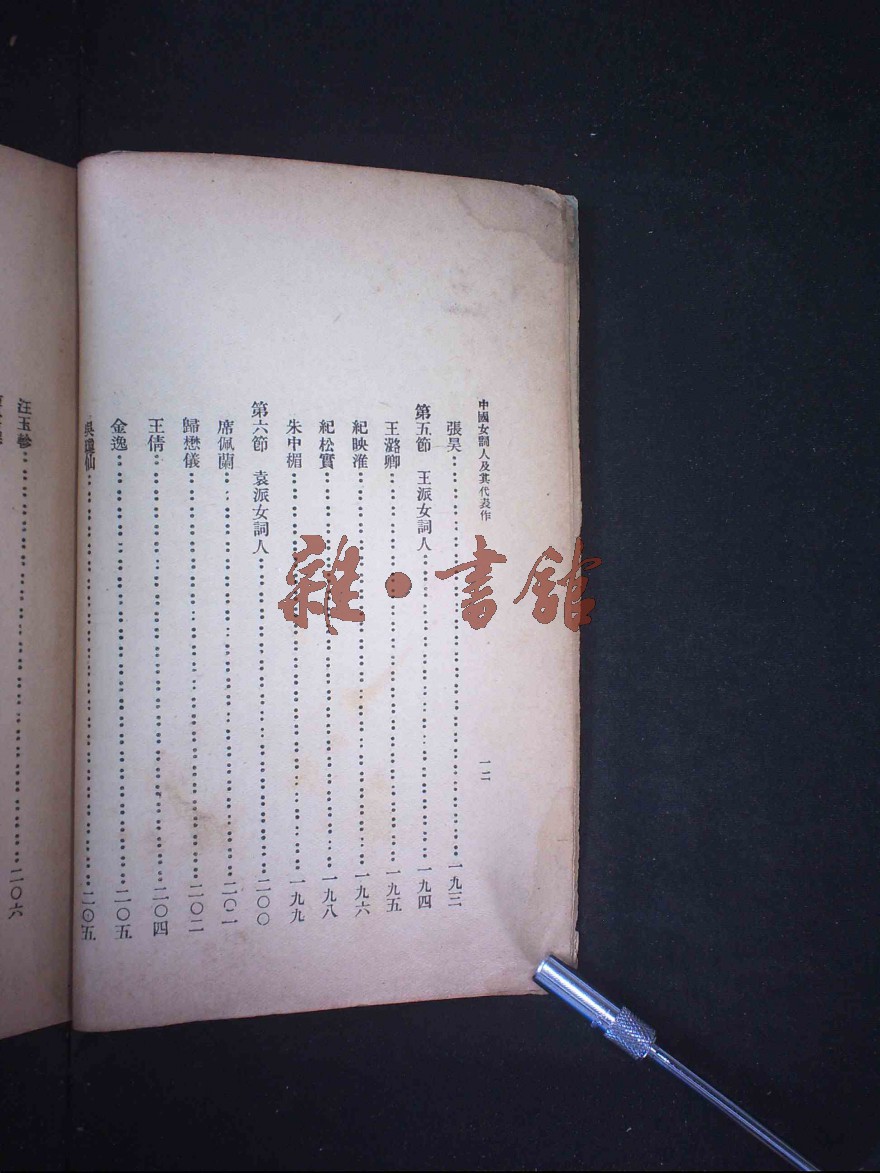 中國女詞人及其代表作
一二
張昊 一九三
第五節 王派女詞人 一九四
王潞卿 一九五
紀映淮 一九六
紀松實 一九八
朱中楣 一九九
第六節 袁派女詞人 二〇〇
席佩蘭 二〇一
歸懋儀 二〇二
王倩 二〇四
金逸 二〇五
吳瓊仙 二〇五
汪玉軫 二〇六
雜·書館